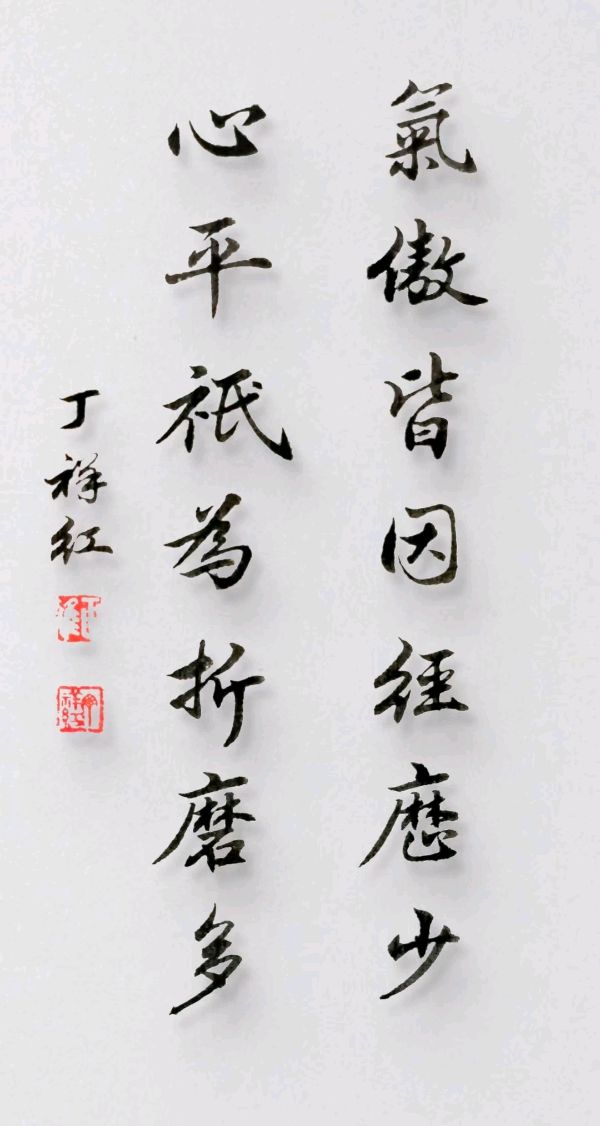 氣傲皆因徑歷少
心平祇為折磨多
丁祥紅